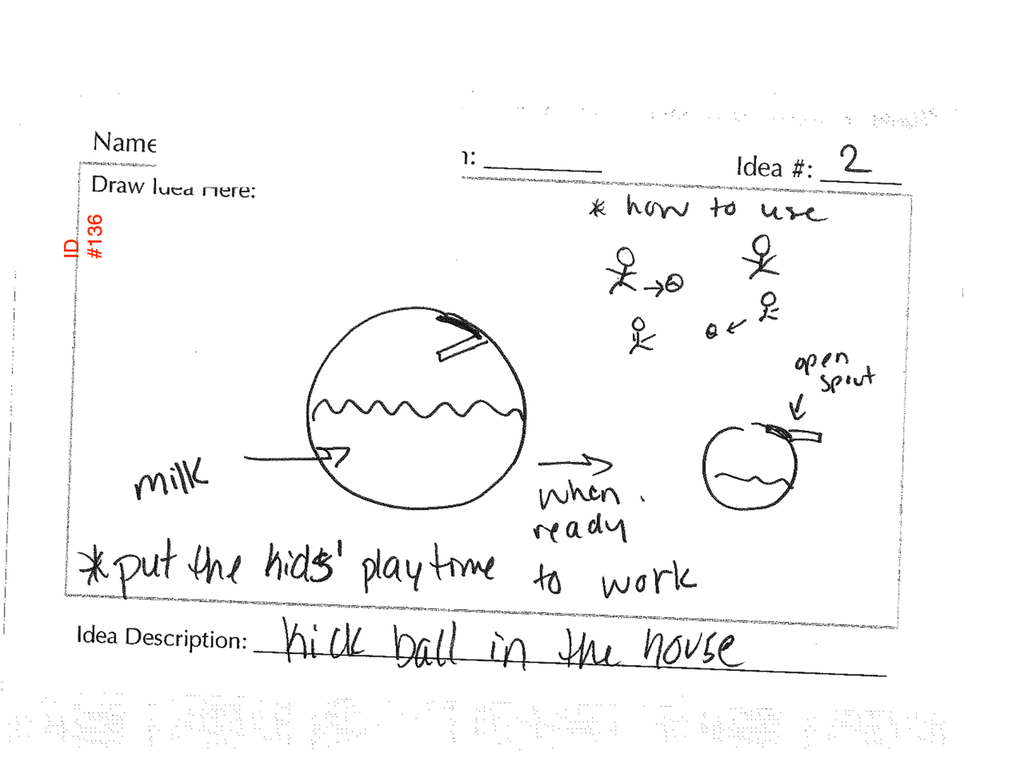 Name
n: ________ Idea #: 2
Draw Idea Here:
ID
#136
* how to use
open
spout
milk
when
ready
*put the kids' playtime to work
Idea Description: kick ball in the house